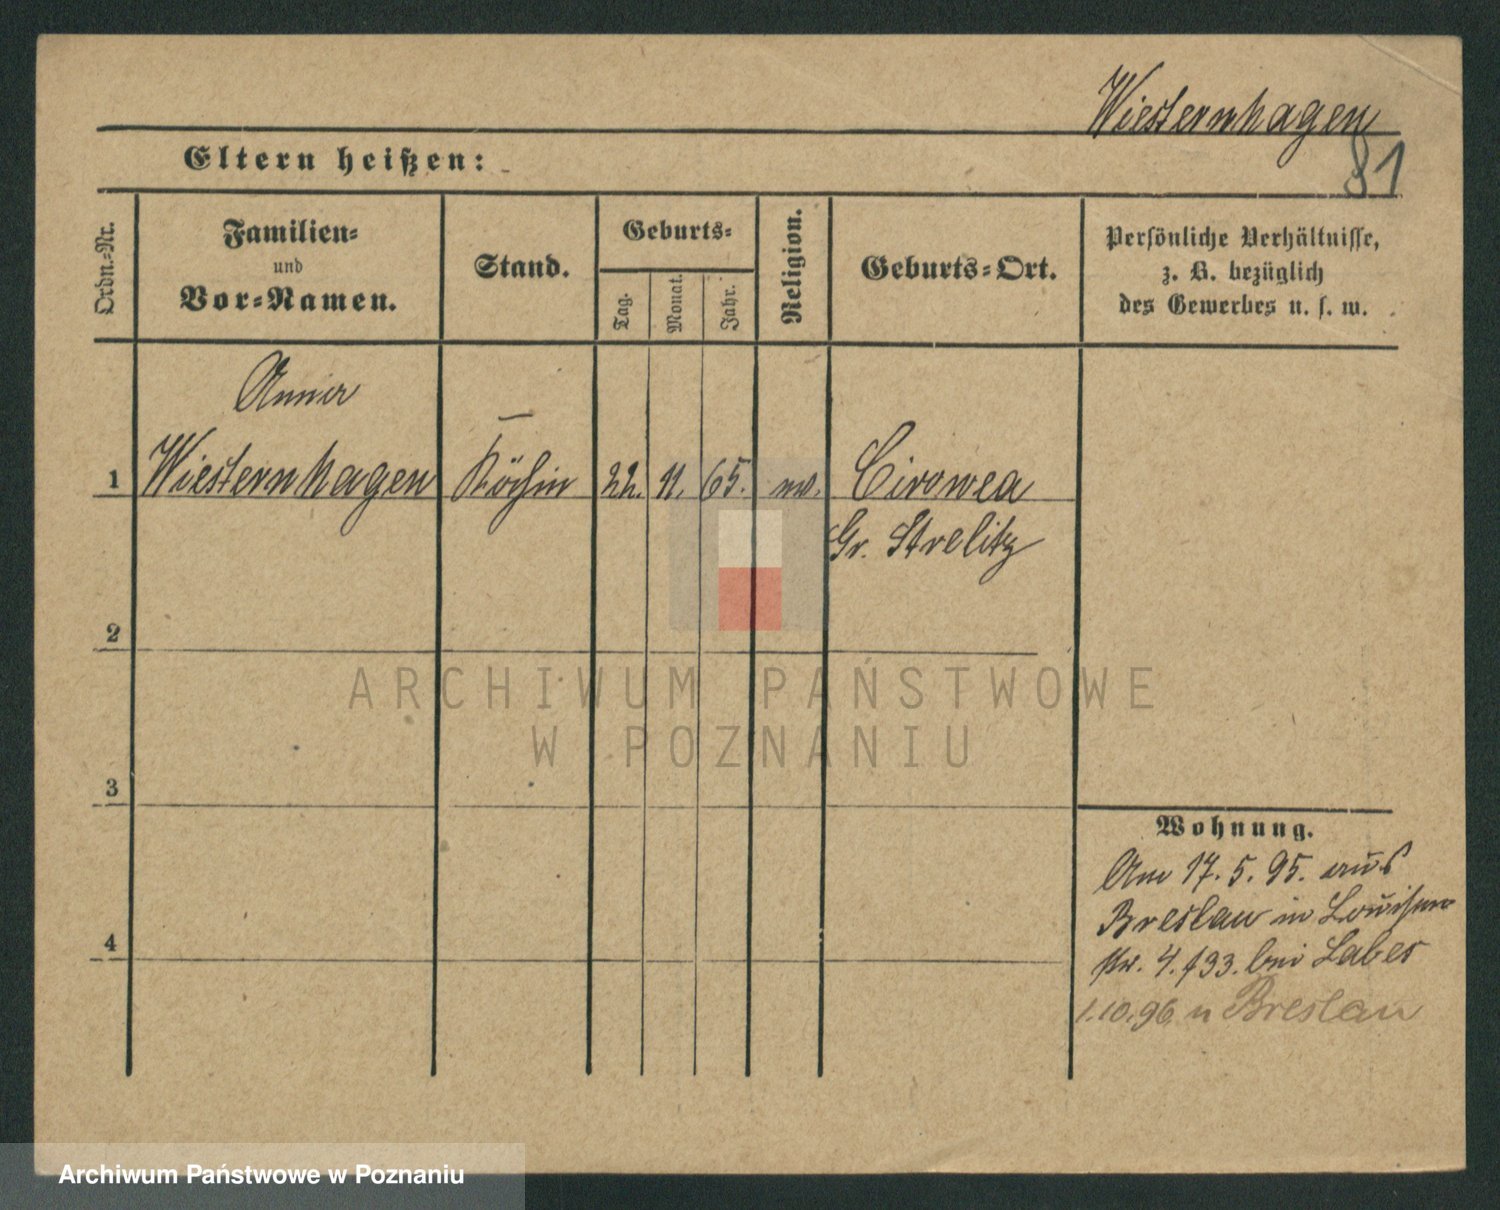 Wiesternhagen
81
Eltern heißen:
Ordn.-Nr.
Familien-
und
Vor-Namen.
Stand.
Geburts-
Tag.
Monat.
Jahr.
Religion.
Geburts-Ort.
Persönliche Verhältnisse,
z. B. bezüglich
des Gewerbes u. s. w.
Anna
1 Wiesternhagen Köchin 22. 11. 65. Cirowea
Gr. Strelitz
2
3
4
Wohnung.
Am 17. 5. 95. aus
Breslau in Louisen
str. 4. bei Labes
1.10.96 n Breslau
ARCHIWUM PAŃSTWOWE
W POZNANIU
Archiwum Państwowe w Poznaniu